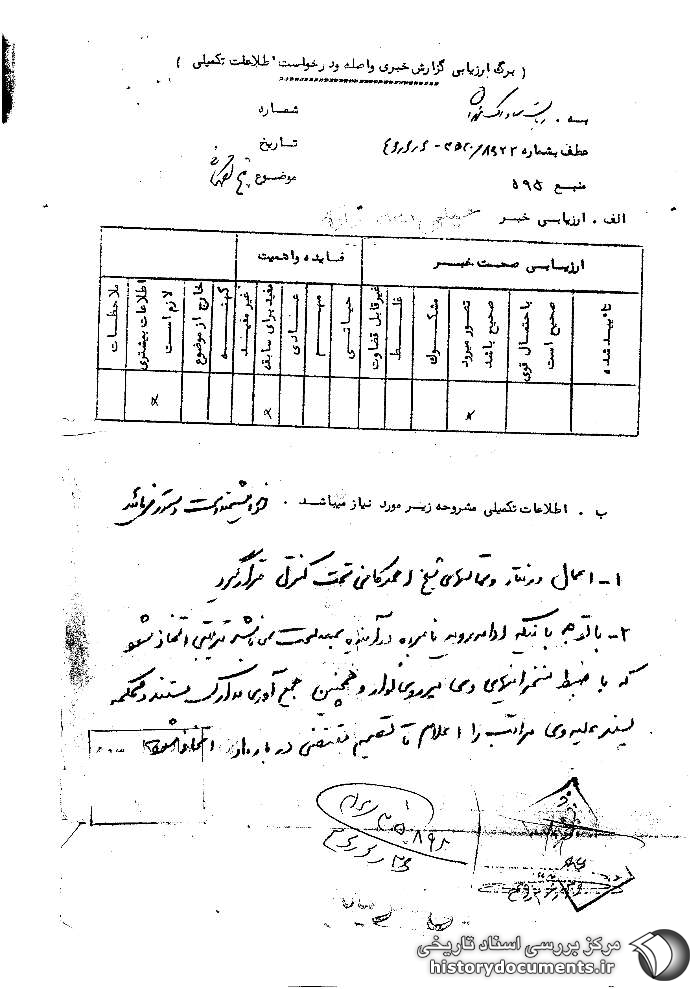 ( برگ ارزیابی گزارش خبری واصله و درخواست اطلاعات تکمیلی )
به . ریاست ساواک تهران
شماره
عطف بشماره ۸۹۲۲/
تاریخ
منبع ۵۹۵
موضوع شیخ
الف . ارزیابی خبر
ارزیابی صحت خبر
فایده و اهمیت
تائید شده
باحتمال قوی صحیح است
تصور میرود صحیح باشد
مشکوک
غلط
غیرقابل قضاوت
حیاتی
مهم
عادی
مفید برای سابقه
غیر مفید
کهنه
خارج از موضوع
اطلاعات بیشتری لازم است
ملاحظات
x
x
x
ب . اطلاعات تکمیلی مشروحه زیر مورد نیاز میباشد . خواهشمند است دستور فرمائید
۱- اعمال و رفتار و تماسهای شیخ احمد کافی تحت کنترل قرار گیرد
۲- با توجه باینکه ادامه رویه نامبرده در آینده بمصلحت نمی باشد ترتیبی اتخاذ شود
که با ضبط سخنرانیهای وی بر روی نوار و همچنین جمع آوری مدارک مستند و محکمه
پسند علیه وی مراتب را اعلام تا تصمیم مقتضی در باره او اتخاذ شود
مرکز بررسی اسناد تاریخی
historydocuments.ir